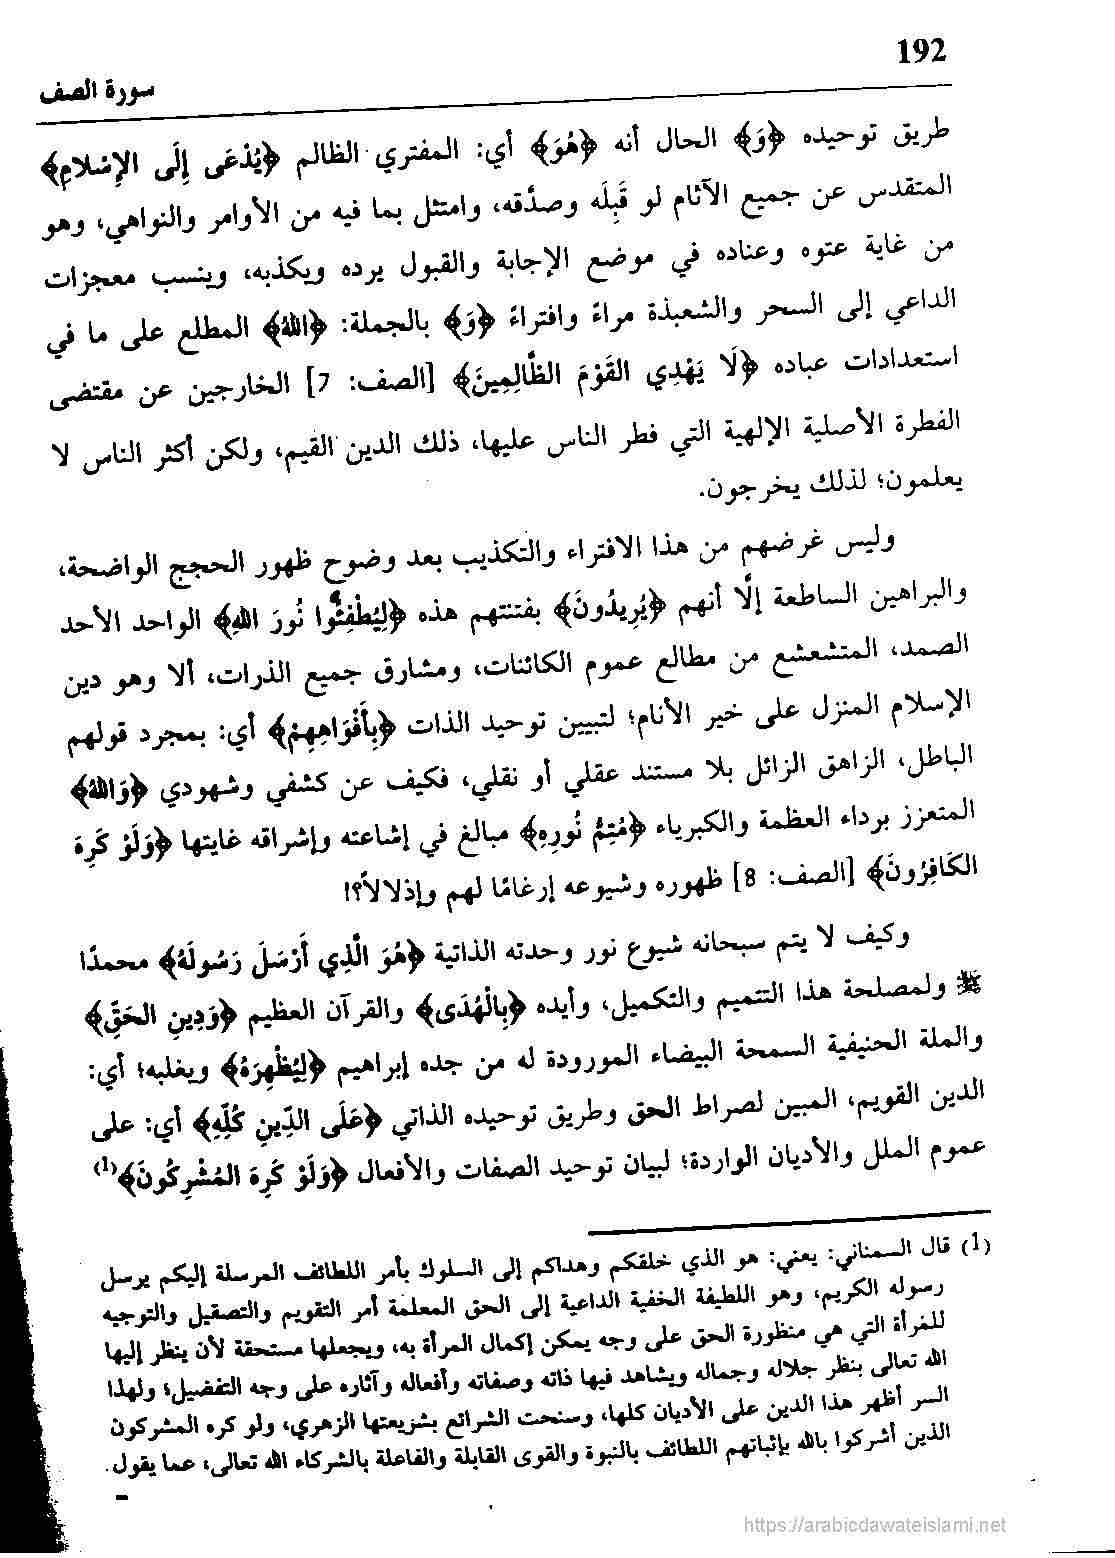 192
سورة الصف
طريق توحيده ﴿وَ﴾ الحال أنه ﴿هُوَ﴾ أي: المفتري الظالم ﴿يُدْعَى إِلَى الإِسْلامِ﴾
المتقدس عن جميع الآثام لو قَبِلَه وصدَّقه، وامتثل بما فيه من الأوامر والنواهي، وهو
من غاية عتوه وعناده في موضع الإجابة والقبول يرده ويكذبه، وينسب معجزات
الداعي إلى السحر والشعبذة مراءً وافتراءً ﴿وَ﴾ بالجملة: ﴿اللهُ﴾ المطلع على ما في
استعدادات عباده ﴿لَا يَهْدِي القَوْمَ الظَّالِمِينَ﴾ [الصف: 7] الخارجين عن مقتضى
الفطرة الأصلية الإلهية التي فطر الناس عليها، ذلك الدين القيم، ولكن أكثر الناس لا
يعلمون؛ لذلك يخرجون.
وليس غرضهم من هذا الافتراء والتكذيب بعد وضوح ظهور الحجج الواضحة،
والبراهين الساطعة إلَّا أنهم ﴿يُرِيدُونَ﴾ بفتنتهم هذه ﴿لِيُطْفِئُوا نُورَ اللهِ﴾ الواحد الأحد
الصمد، المتشعشع من مطالع عموم الكائنات، ومشارق جميع الذرات، ألا وهو دين
الإسلام المنزل على خير الأنام؛ لتبيين توحيد الذات ﴿بِأَفْوَاهِهِمْ﴾ أي: بمجرد قولهم
الباطل، الزاهق الزائل بلا مستند عقلي أو نقلي، فكيف عن كشفي وشهودي ﴿وَاللهُ﴾
المتعزز برداء العظمة والكبرياء ﴿مُتِمُّ نُورِهِ﴾ مبالغ في إشاعته وإشراقه غايتها ﴿وَلَوْ كَرِهَ
الكَافِرُونَ﴾ [الصف: 8] ظهوره وشيوعه إرغامًا لهم وإذلالاً؟!
وكيف لا يتم سبحانه شيوع نور وحدته الذاتية ﴿هُوَ الَّذِي أَرْسَلَ رَسُولَهُ﴾ محمدًا
ﷺ ولمصلحة هذا التتميم والتكميل، وأيده ﴿بِالْهُدَى﴾ والقرآن العظيم ﴿وَدِينِ الحَقِّ﴾
والملة الحنيفية السمحة البيضاء المورودة له من جده إبراهيم ﴿لِيُظْهِرَهُ﴾ ويغلبه؛ أي:
الدين القويم، المبين لصراط الحق وطريق توحيده الذاتي ﴿عَلَى الدِّينِ كُلِّهِ﴾ أي: على
عموم الملل والأديان الواردة؛ لبيان توحيد الصفات والأفعال ﴿وَلَوْ كَرِهَ المُشْرِكُونَ﴾(1)
(1) قال السمناني: يعني: هو الذي خلقكم وهداكم إلى السلوك بأمر اللطائف المرسلة إليكم يرسل
رسوله الكريم، وهو اللطيفة الخفية الداعية إلى الحق المعلمة أمر التقويم والتصقيل والتوجيه
للمرأة التي هي منظورة الحق على وجه يمكن إكمال المرأة به، ويجعلها مستحقة لأن ينظر إليها
الله تعالى بنظر جلاله وجماله ويشاهد فيها ذاته وصفاته وأفعاله وآثاره على وجه التفضيل؛ ولهذا
السر أظهر هذا الدين على الأديان كلها، وسنحت الشرائع بشريعتها الزهري، ولو كره المشركون
الذين أشركوا بالله بإثباتهم اللطائف بالنبوة والقوى القابلة والفاعلة بالشركاء الله تعالى، عما يقول.
https://arabicdawateislami.net